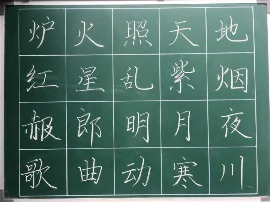 炉火照天地
红星乱紫烟
赧郎明月夜
歌曲动寒川